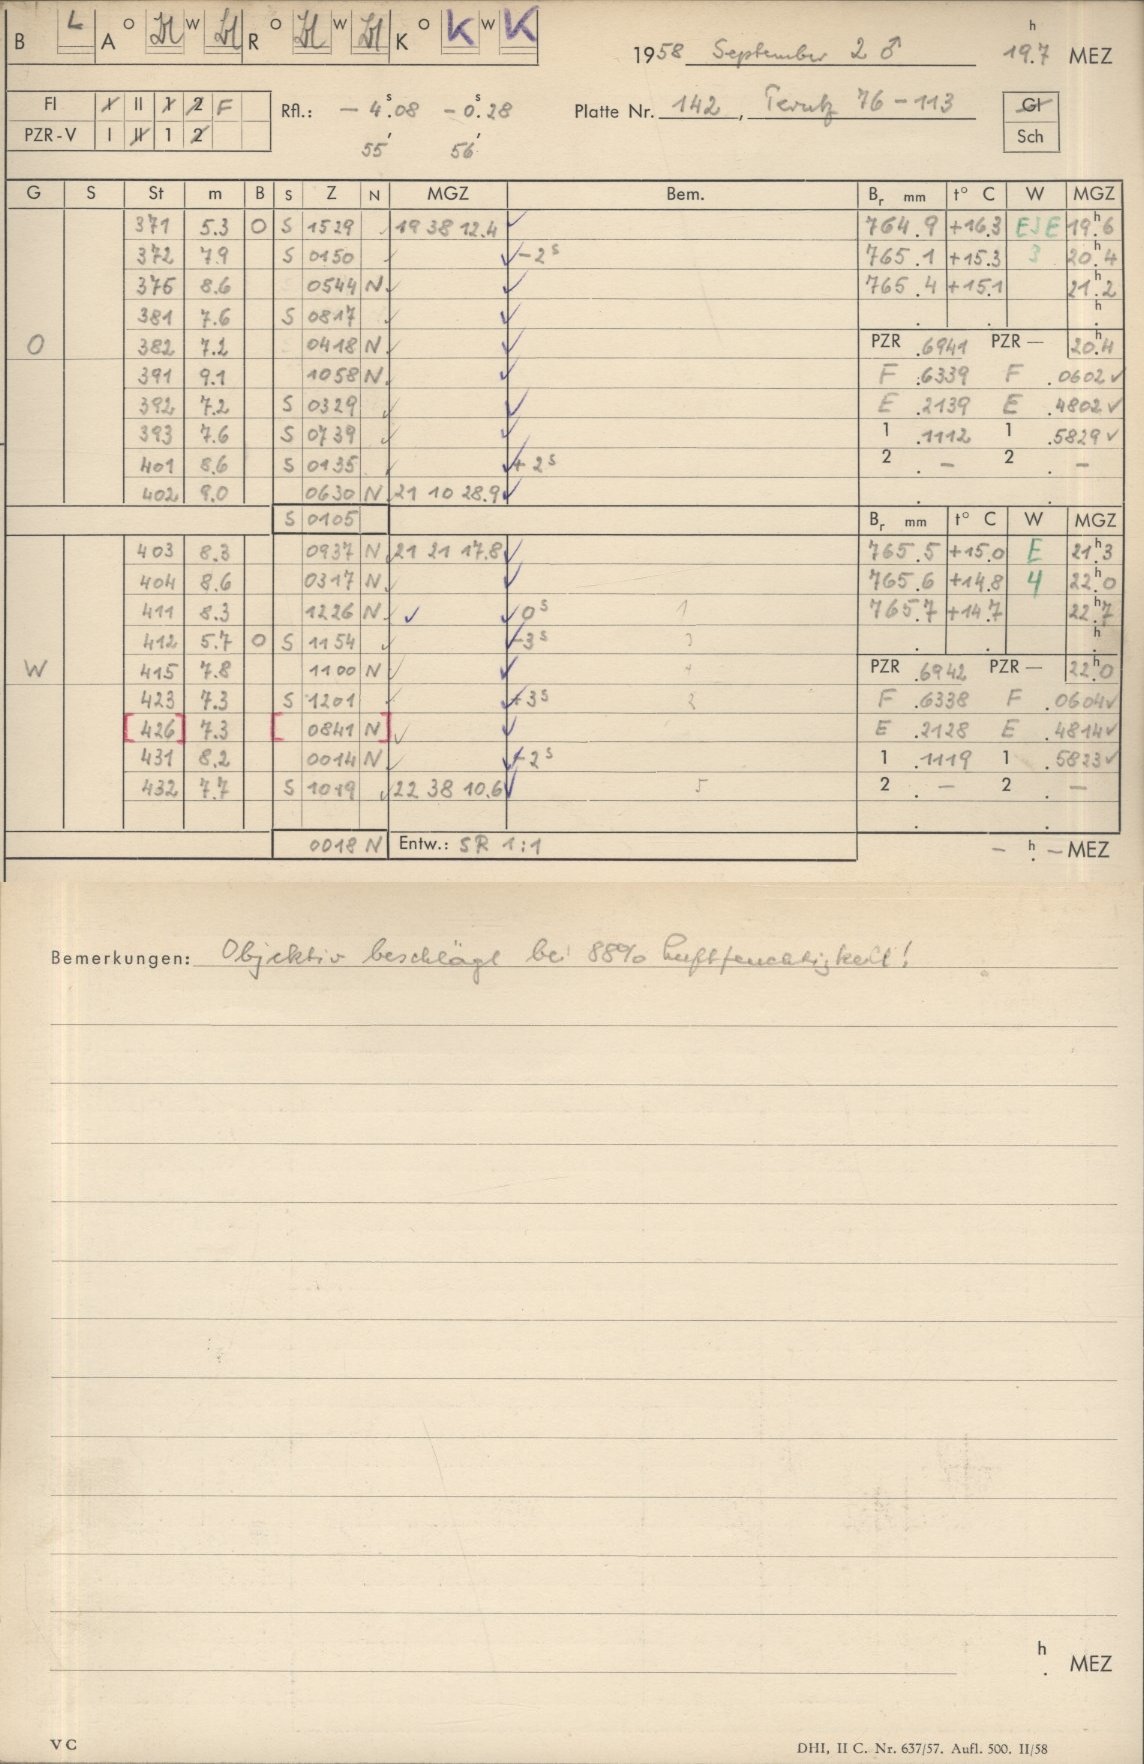 B L A O W R O W K O K W K
1958 September 2 ♂ 19.7 h MEZ
FI I II 1 2 F
PZR-V I II 1 2
Rfl.: – 4.08 s – 0.28 s
55′ 56′
Platte Nr. 142, Perutz 76–113
Gl
Sch
G S St m B S Z N MGZ Bem. Br mm t° C W MGZ
371 5.3 O S 1529 19 38 12.4 ✓ 764.9 +16.3 E3E 19.6 h
372 7.9 S 0150 ✓ –2s 765.1 +15.3 3 20.4 h
375 8.6 0544 N ✓ 765.4 +15.1 21.2 h
381 7.6 S 0817 ✓ . . h
O 382 7.2 0418 N ✓ PZR .6941 PZR — 20.4 h
391 9.1 1058 N ✓ F .6339 F .0602 ✓
392 7.2 S 0329 ✓ E .2139 E .4802 ✓
393 7.6 S 0739 ✓ 1 .1112 1 .5829 ✓
401 8.6 S 0135 ✓ +2s 2 . – 2 . –
402 9.0 0630 N 21 10 28.9 ✓
S 0105 Br mm t° C W MGZ
403 8.3 0937 N 21 21 17.8 ✓ 765.5 +15.0 E 21.3 h
404 8.6 0317 N ✓ 765.6 +14.8 4 22.0 h
411 8.3 1226 N ✓ ✓ 0s 1 765.7 +14.7 22.7 h
412 5.7 O S 1154 ✓ –3s 3 . . h
W 415 7.8 1100 N ✓ 4 PZR .6942 PZR — 22.0 h
423 7.3 S 1201 ✓ +3s 2 F .6338 F .0604 ✓
[426] 7.3 [0841 N] ✓ E .2128 E .4814 ✓
431 8.2 0014 N ✓ +2s 1 .1119 1 .5823 ✓
432 7.7 S 1019 22 38 10.6 ✓ 5 2 . – 2 . –
0018 N Entw.: SR 1:1 – h – MEZ
Bemerkungen: Objektiv beschlägt bei 88% Luftfeuchtigkeit!
h . MEZ
V C
DHI, II C. Nr. 637/57. Aufl. 500. II/58